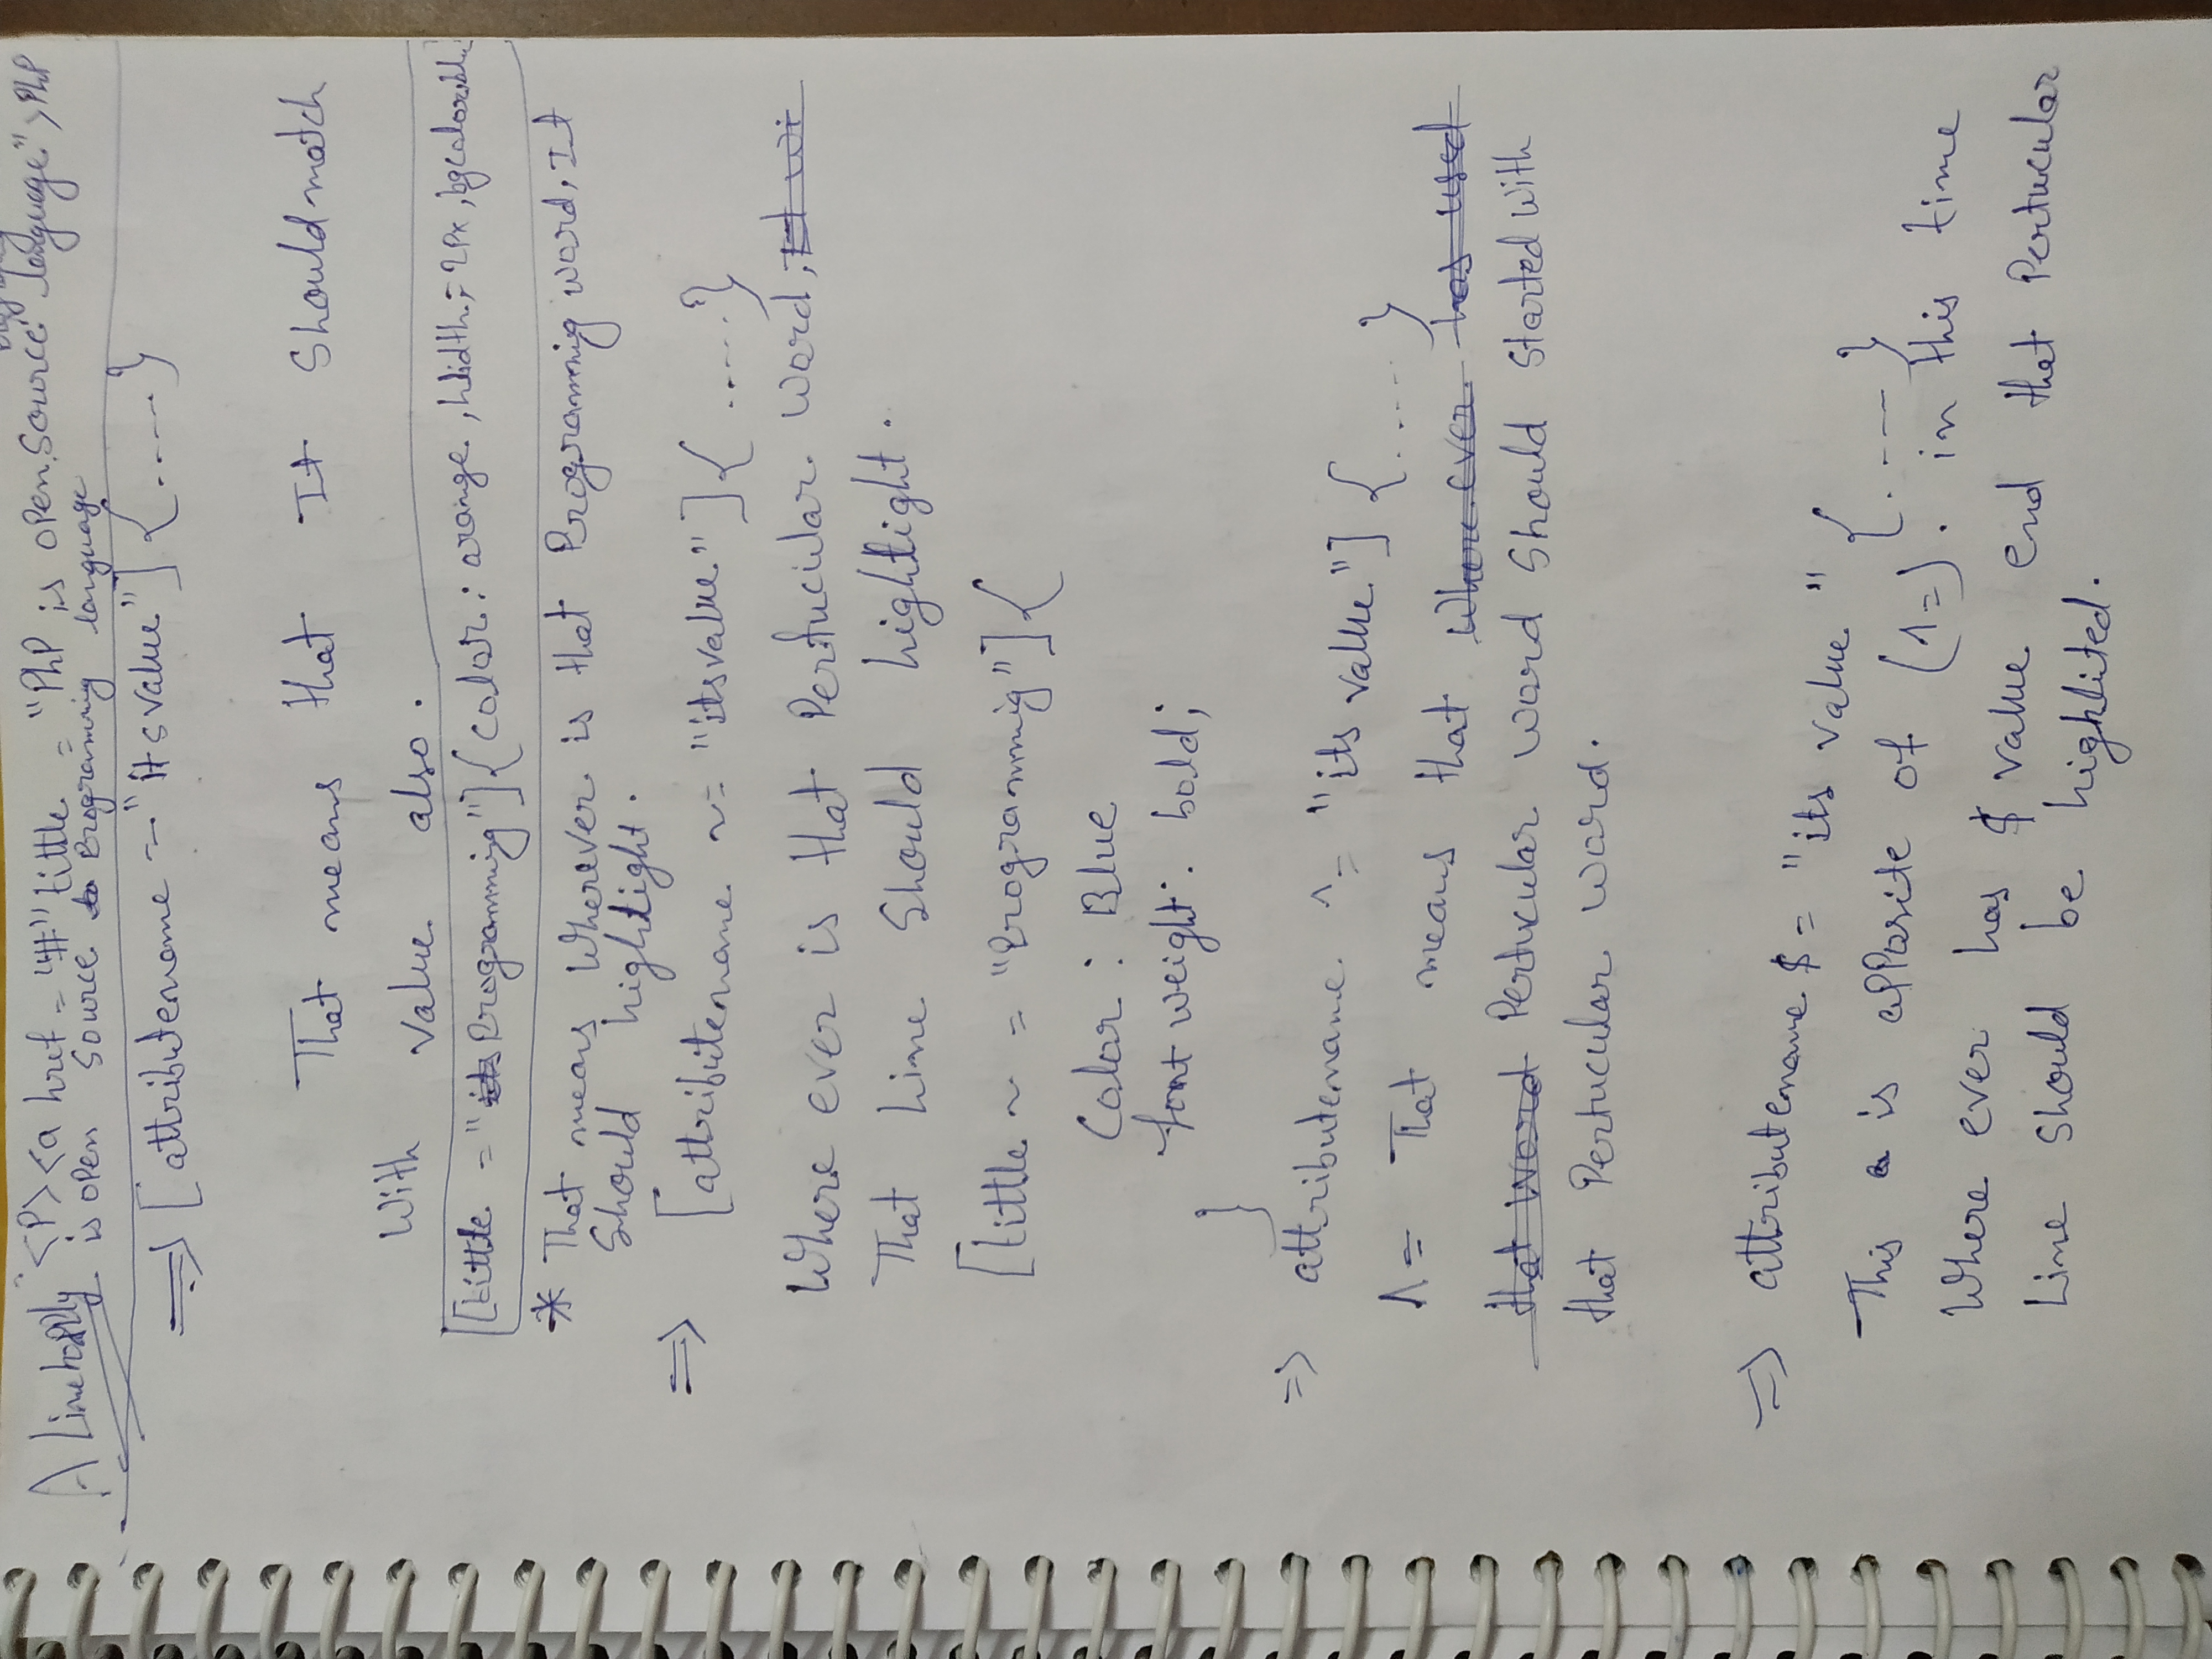 A) <P><a href = "#" little = "PhP is open Source language">PhP
is open Source to Programming language
⇒ [attributename = "its value"] { .... }
That means that It should match
with value also.
[little = "its Programming"]{color: orange, width = 2px,
* That means wherever is that Programming word, It
should hightlight.
⇒ [attributename ~= "its value."]{ ....}
Where ever is that Perticular word, It wi
That line should hightlight.
[little ~ = "Programming"]{
Color: Blue
font weight: bold;
}
⇒ attributename ^= "its value"] { .... }
^= That means that where ever has used
that word Perticular word should started with
that Perticular word.
⇒ attributename $= "its value" { .... }
This a is apposite of (^=). in this time
Where ever has $ value end that Perticular
Line should be highlited.